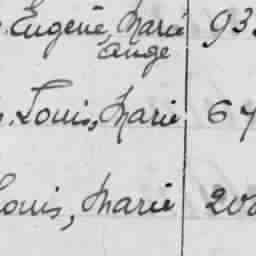 Eugène, Marie 93
Ange
Louis, Marie 67
Louis, Marie 200